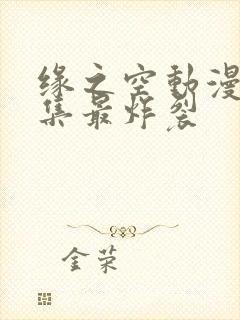 缘之空動漫
集最炸裂
金荣